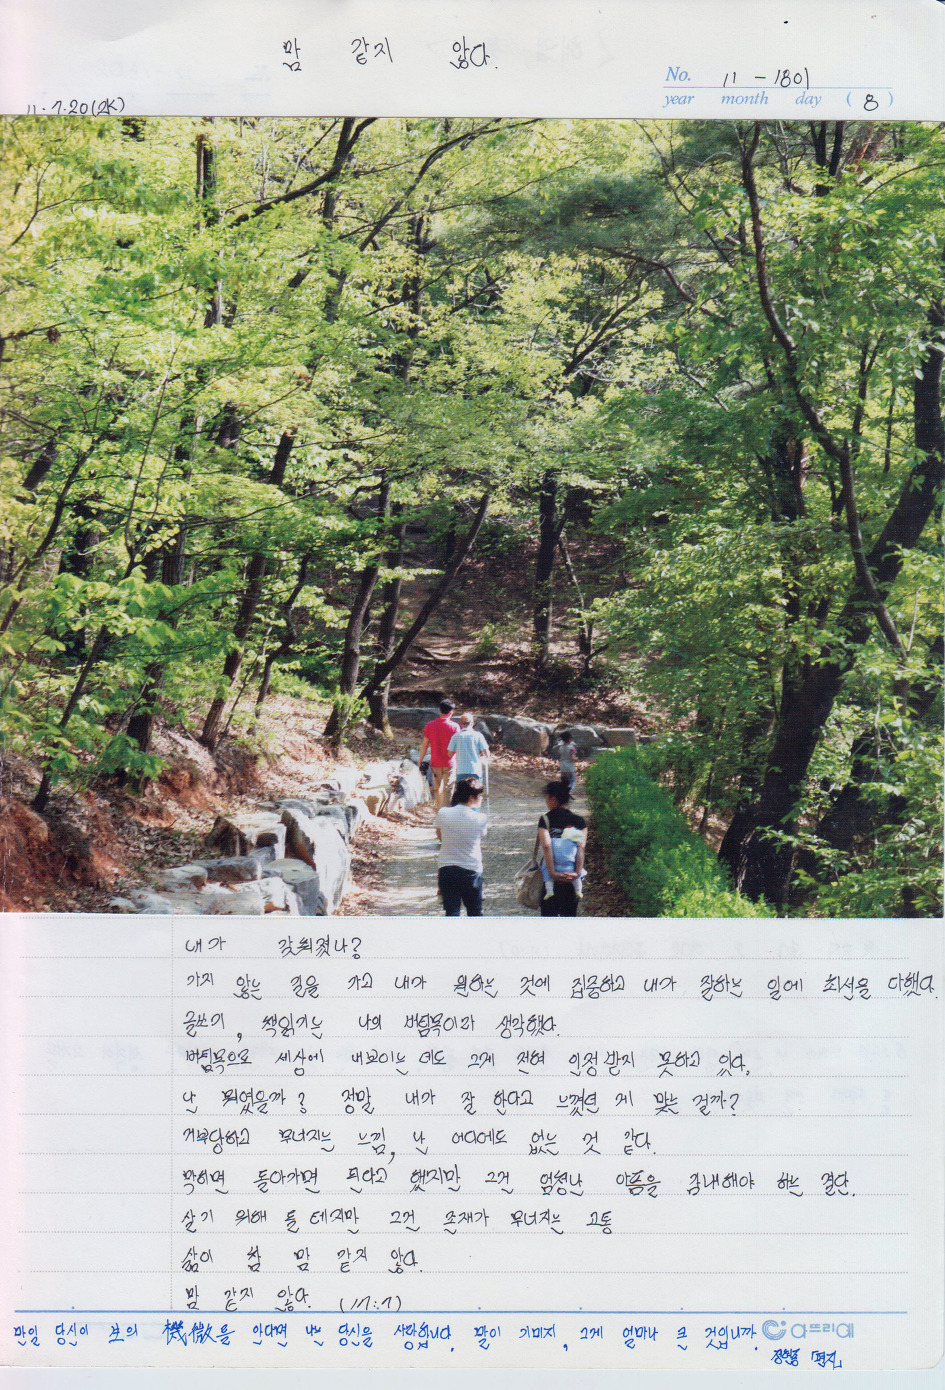 맘 같지 않다.
No. 11-1801
year month day (8)
11.7.20(水)
내가 갖춰졌나?
가지 않는 길을 가고 내가 원하는 것에 집중하고 내가 잘하는 일에 최선을 다했다.
글쓰기, 책읽기는 나의 버팀목이라 생각했다.
버팀목으로 세상에 내보이는데도 그게 전혀 인정받지 못하고 있다.
난 뭐였을까? 정말 내가 잘 한다고 느꼈던 게 맞는 걸까?
거부당하고 무너지는 느낌, 난 어디에도 없는 것 같다.
막히면 돌아가면 된다고 했지만 그건 엄청난 아픔을 감내해야 하는 결단.
살기 위해 틀 테지만 그건 존재가 무너지는 고통
삶이 참 맘 같지 않다.
맘 같지 않다. (117:7)
만일 당신이 보의 機微을 안다면 나는 당신을 사랑합니다. 말이 기미지, 그게 얼마나 큰 것입니까. 아뜨리에
정현종 「편지」